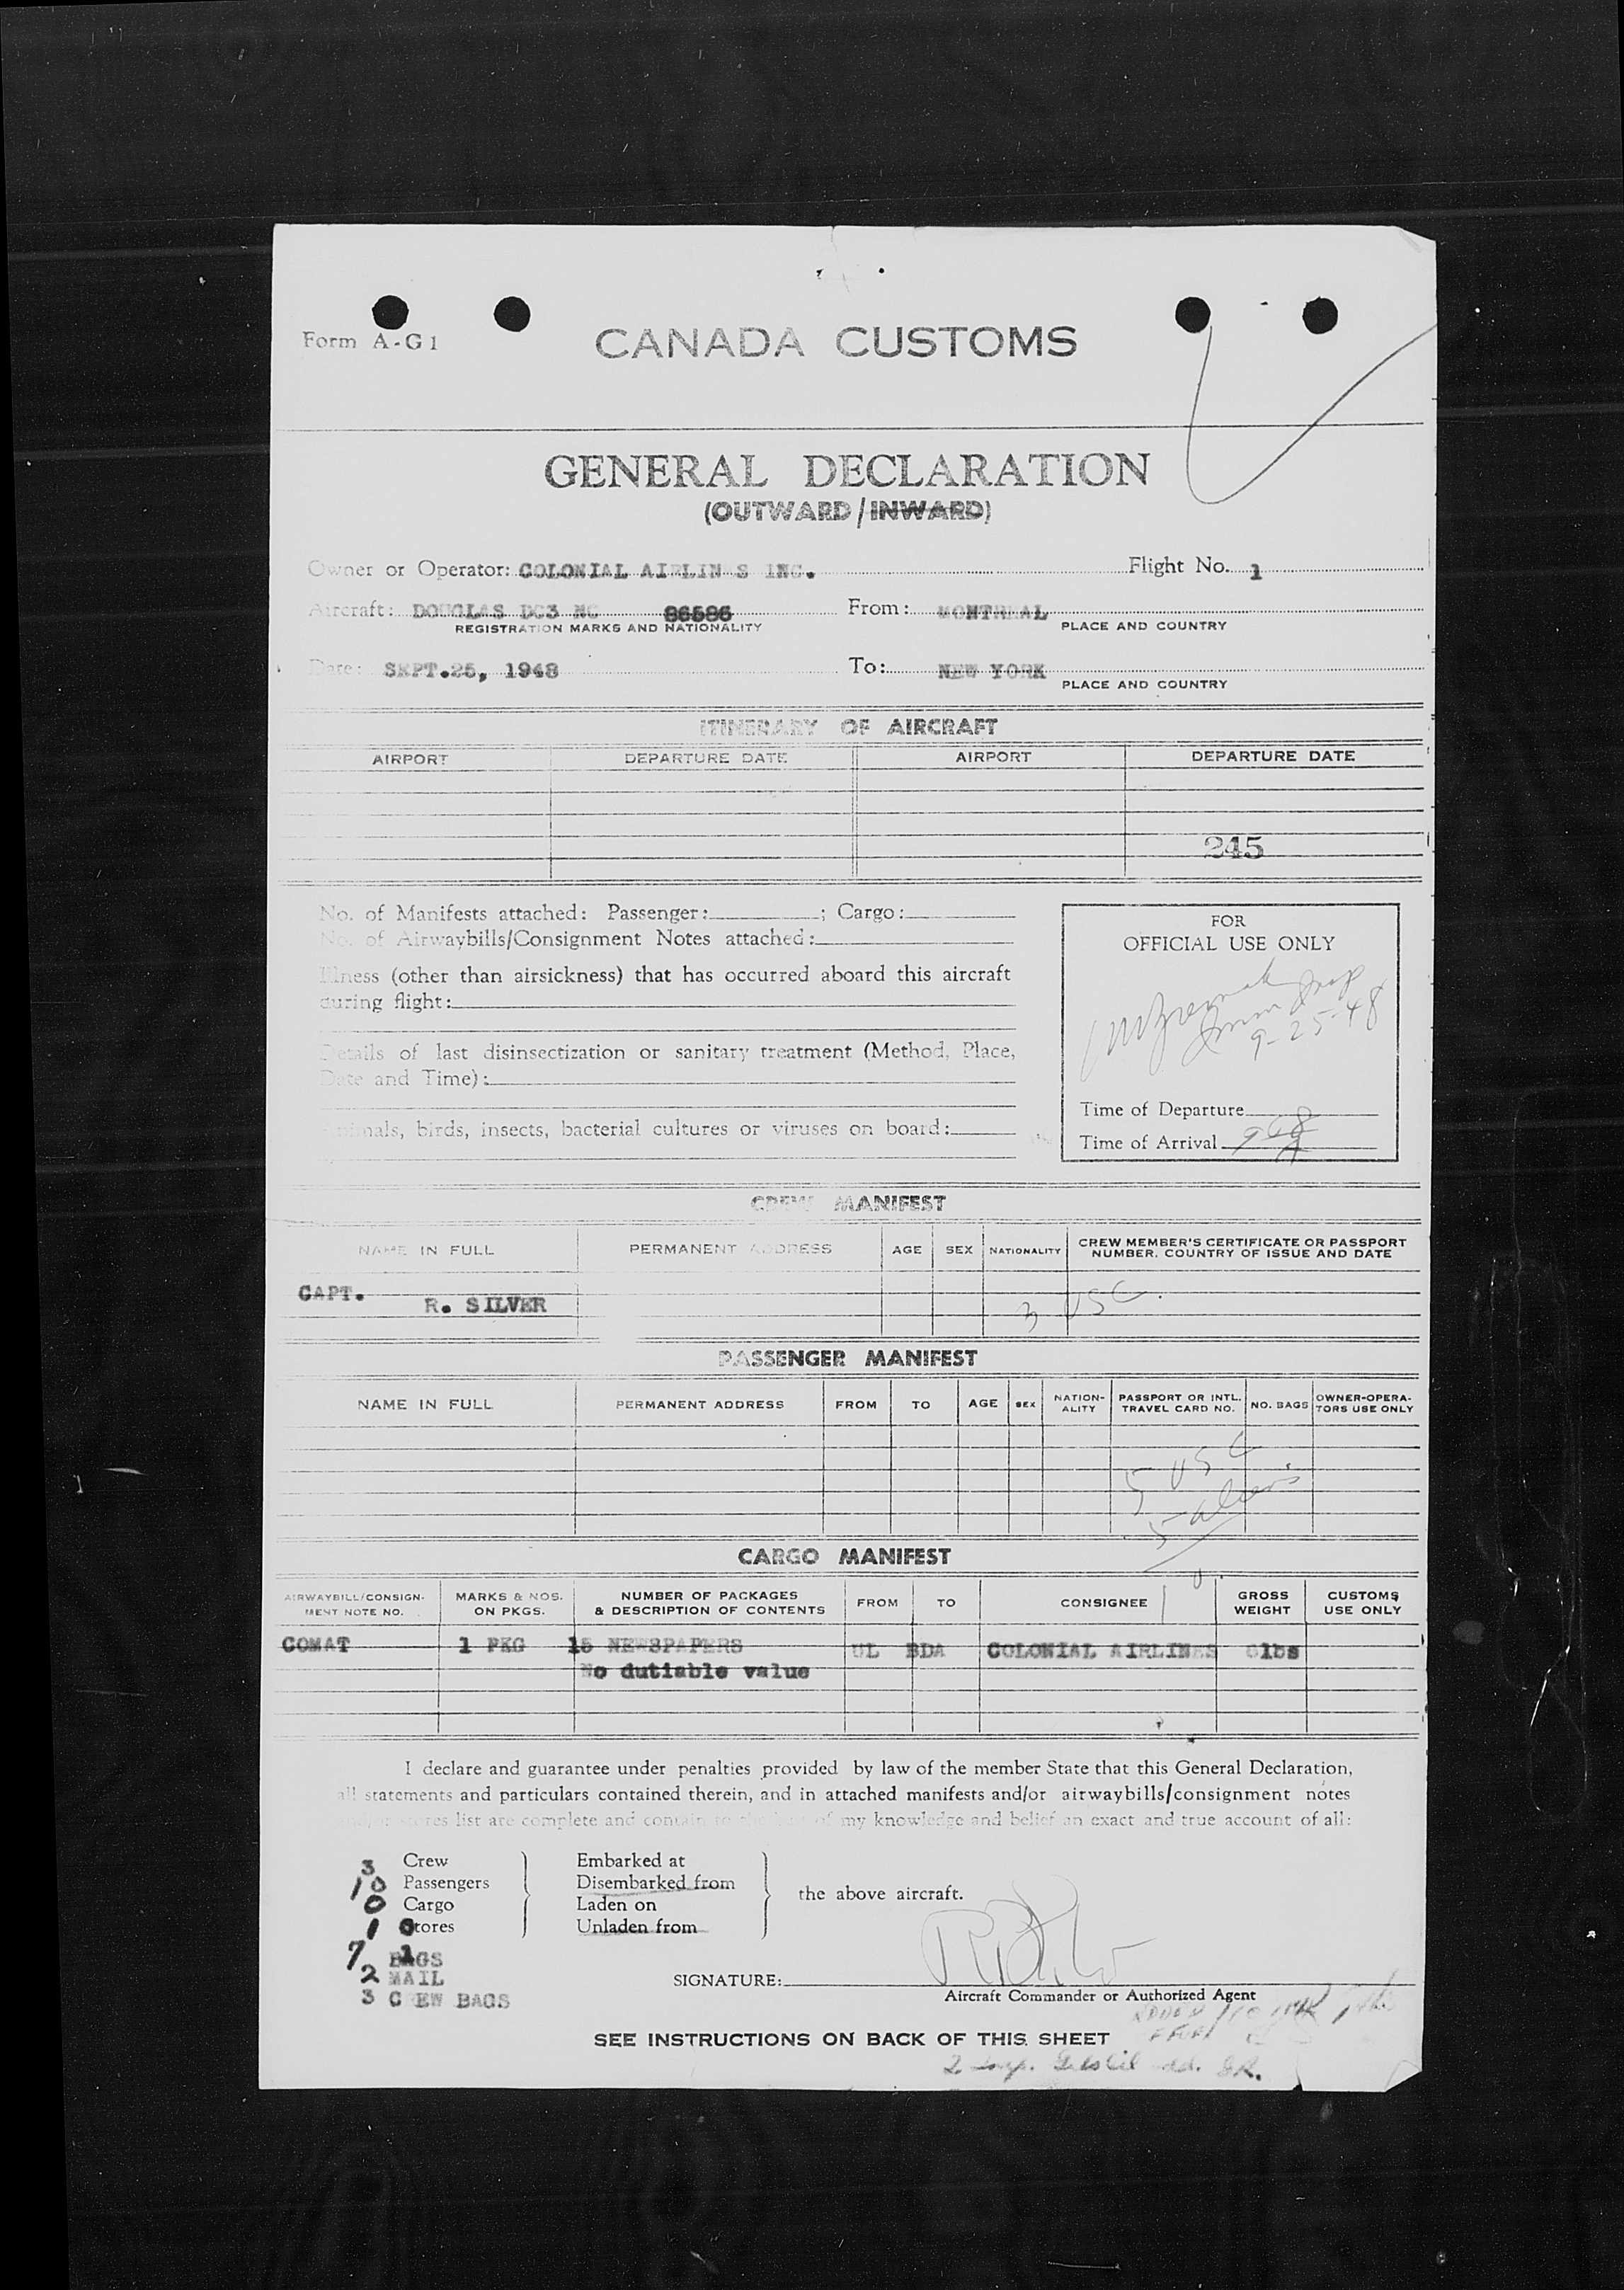 Form A-G1
CANADA CUSTOMS
GENERAL DECLARATION
(OUTWARD/INWARD)
Owner or Operator: COLONIAL AIRLIN S INC. Flight No. 1
Aircraft: DOUGLAS DC3 NC 86586 From: MONTREAL
REGISTRATION MARKS AND NATIONALITY PLACE AND COUNTRY
Date: SEPT.25, 1948 To: NEW YORK
PLACE AND COUNTRY
ITINERARY OF AIRCRAFT
AIRPORT DEPARTURE DATE AIRPORT DEPARTURE DATE
245
No. of Manifests attached: Passenger: ; Cargo:
No. of Airwaybills/Consignment Notes attached:
Illness (other than airsickness) that has occurred aboard this aircraft
during flight:
Details of last disinsectization or sanitary treatment (Method, Place,
Date and Time):
Animals, birds, insects, bacterial cultures or viruses on board:
FOR
OFFICIAL USE ONLY
9-25-48
Time of Departure
Time of Arrival
CREW MANIFEST
NAME IN FULL PERMANENT ADDRESS AGE SEX NATIONALITY CREW MEMBER'S CERTIFICATE OR PASSPORT
NUMBER, COUNTRY OF ISSUE AND DATE
CAPT. R. SILVER 3 USC.
PASSENGER MANIFEST
NAME IN FULL PERMANENT ADDRESS FROM TO AGE SEX NATION-
ALITY PASSPORT OR INTL.
TRAVEL CARD NO. NO. BAGS OWNER-OPERA-
TORS USE ONLY
5 USC
5 aliens
CARGO MANIFEST
AIRWAYBILL/CONSIGN-
MENT NOTE NO. MARKS & NOS.
ON PKGS. NUMBER OF PACKAGES
& DESCRIPTION OF CONTENTS FROM TO CONSIGNEE GROSS
WEIGHT CUSTOMS
USE ONLY
COMAT 1 PKG 15 NEWSPAPERS UL BDA COLONIAL AIRLINES 6lbs
No dutiable value
I declare and guarantee under penalties provided by law of the member State that this General Declaration,
all statements and particulars contained therein, and in attached manifests and/or airwaybills/consignment notes
and/or stores list are complete and contain to the best of my knowledge and belief an exact and true account of all:
3 Crew Embarked at
10 Passengers Disembarked from
0 Cargo Laden on
1 Stores Unladen from
the above aircraft.
7 BAGS
2 MAIL
3 C EW BAGS
SIGNATURE:
Aircraft Commander or Authorized Agent
SEE INSTRUCTIONS ON BACK OF THIS SHEET